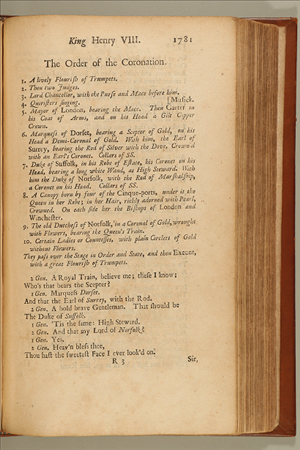 King Henry VIII. 1781
The Order of the Coronation.
1. A lively Flourish of Trumpets.
2. Then two Judges.
3. Lord Chancellor, with the Purse and Mace before him.
4. Queristers singing. [Musick.
5. Mayor of London, bearing the Mace. Then Garter in
his Coat of Arms, and on his Head a Gilt Copper
Crown.
6. Marquess of Dorset, bearing a Scepter of Gold, on his
Head a Demi-Coronal of Gold. With him, the Earl of
Surrey, bearing the Rod of Silver with the Dove, Crown'd
with an Earl's Coronet. Collars of SS.
7. Duke of Suffolk, in his Robe of Estate, his Coronet on his
Head, bearing a long white Wand, as High Steward. With
him the Duke of Norfolk, with the Rod of Marshalship,
a Coronet on his Head. Collars of SS.
8. A Canopy born by four of the Cinque-ports, under it the
Queen in her Robe; in her Hair, richly adorned with Pearl,
Crowned. On each side her the Bishops of London and
Winchester.
9. The old Dutchess of Norfolk, in a Coronal of Gold, wrought
with Flowers, bearing the Queen's Train.
10. Certain Ladies or Countesses, with plain Circlets of Gold
without Flowers.
They pass over the Stage in Order and State, and then Exeunt,
with a great Flourish of Trumpets.
2 Gen. A Royal Train, believe me; these I know;
Who's that bears the Scepter?
1 Gen. Marquess Dorset.
And that the Earl of Surrey, with the Rod.
2 Gen. A bold brave Gentleman. That should be
The Duke of Suffolk.
1 Gen. 'Tis the same: High Steward.
2 Gen. And that my Lord of Norfolk?
1 Gen. Yes.
2 Gen. Heav'n bless thee,
Thou hast the sweetest Face I ever look'd on.
R 3 Sir,